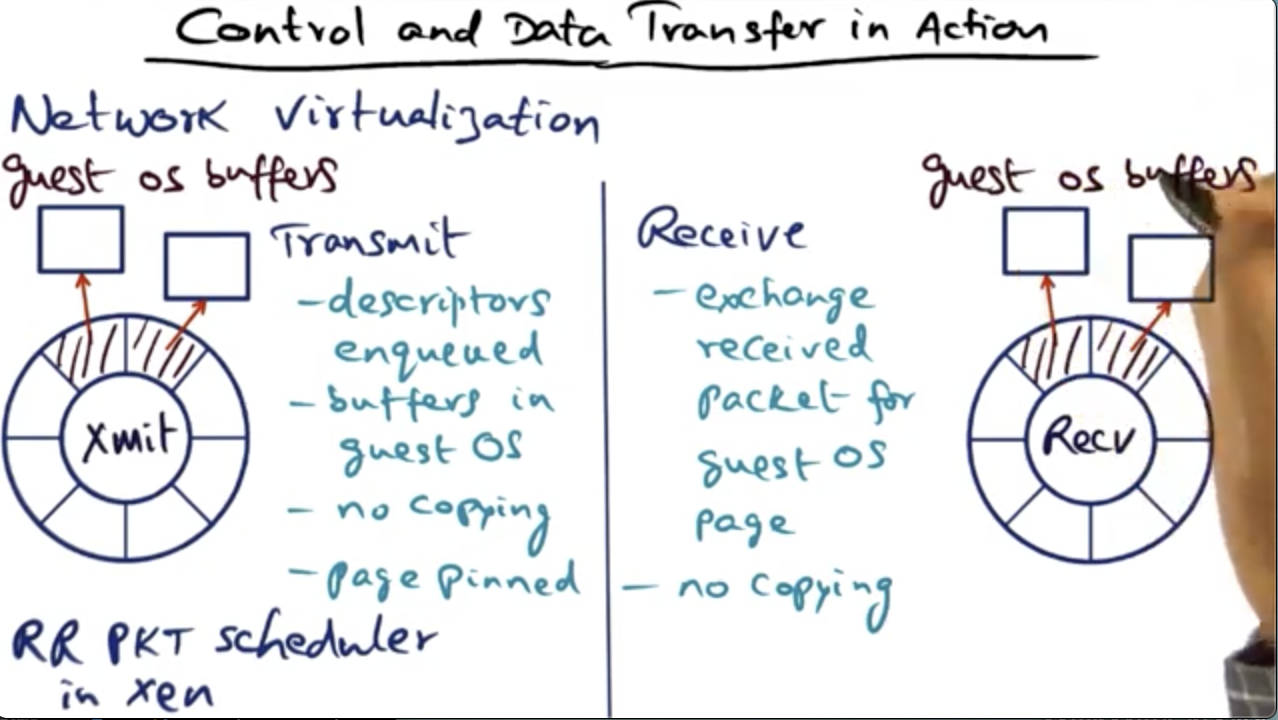 Control and Data Transfer in Action
Network Virtualization
guest os buffers
Transmit
- descriptors
enqueued
- buffers in
guest OS
- no copying
- page pinned
Xmit
RR PKT scheduler
in xen
guest os buffers
Receive
- exchange
received
packet for
guest OS
page
- no copying
Recv